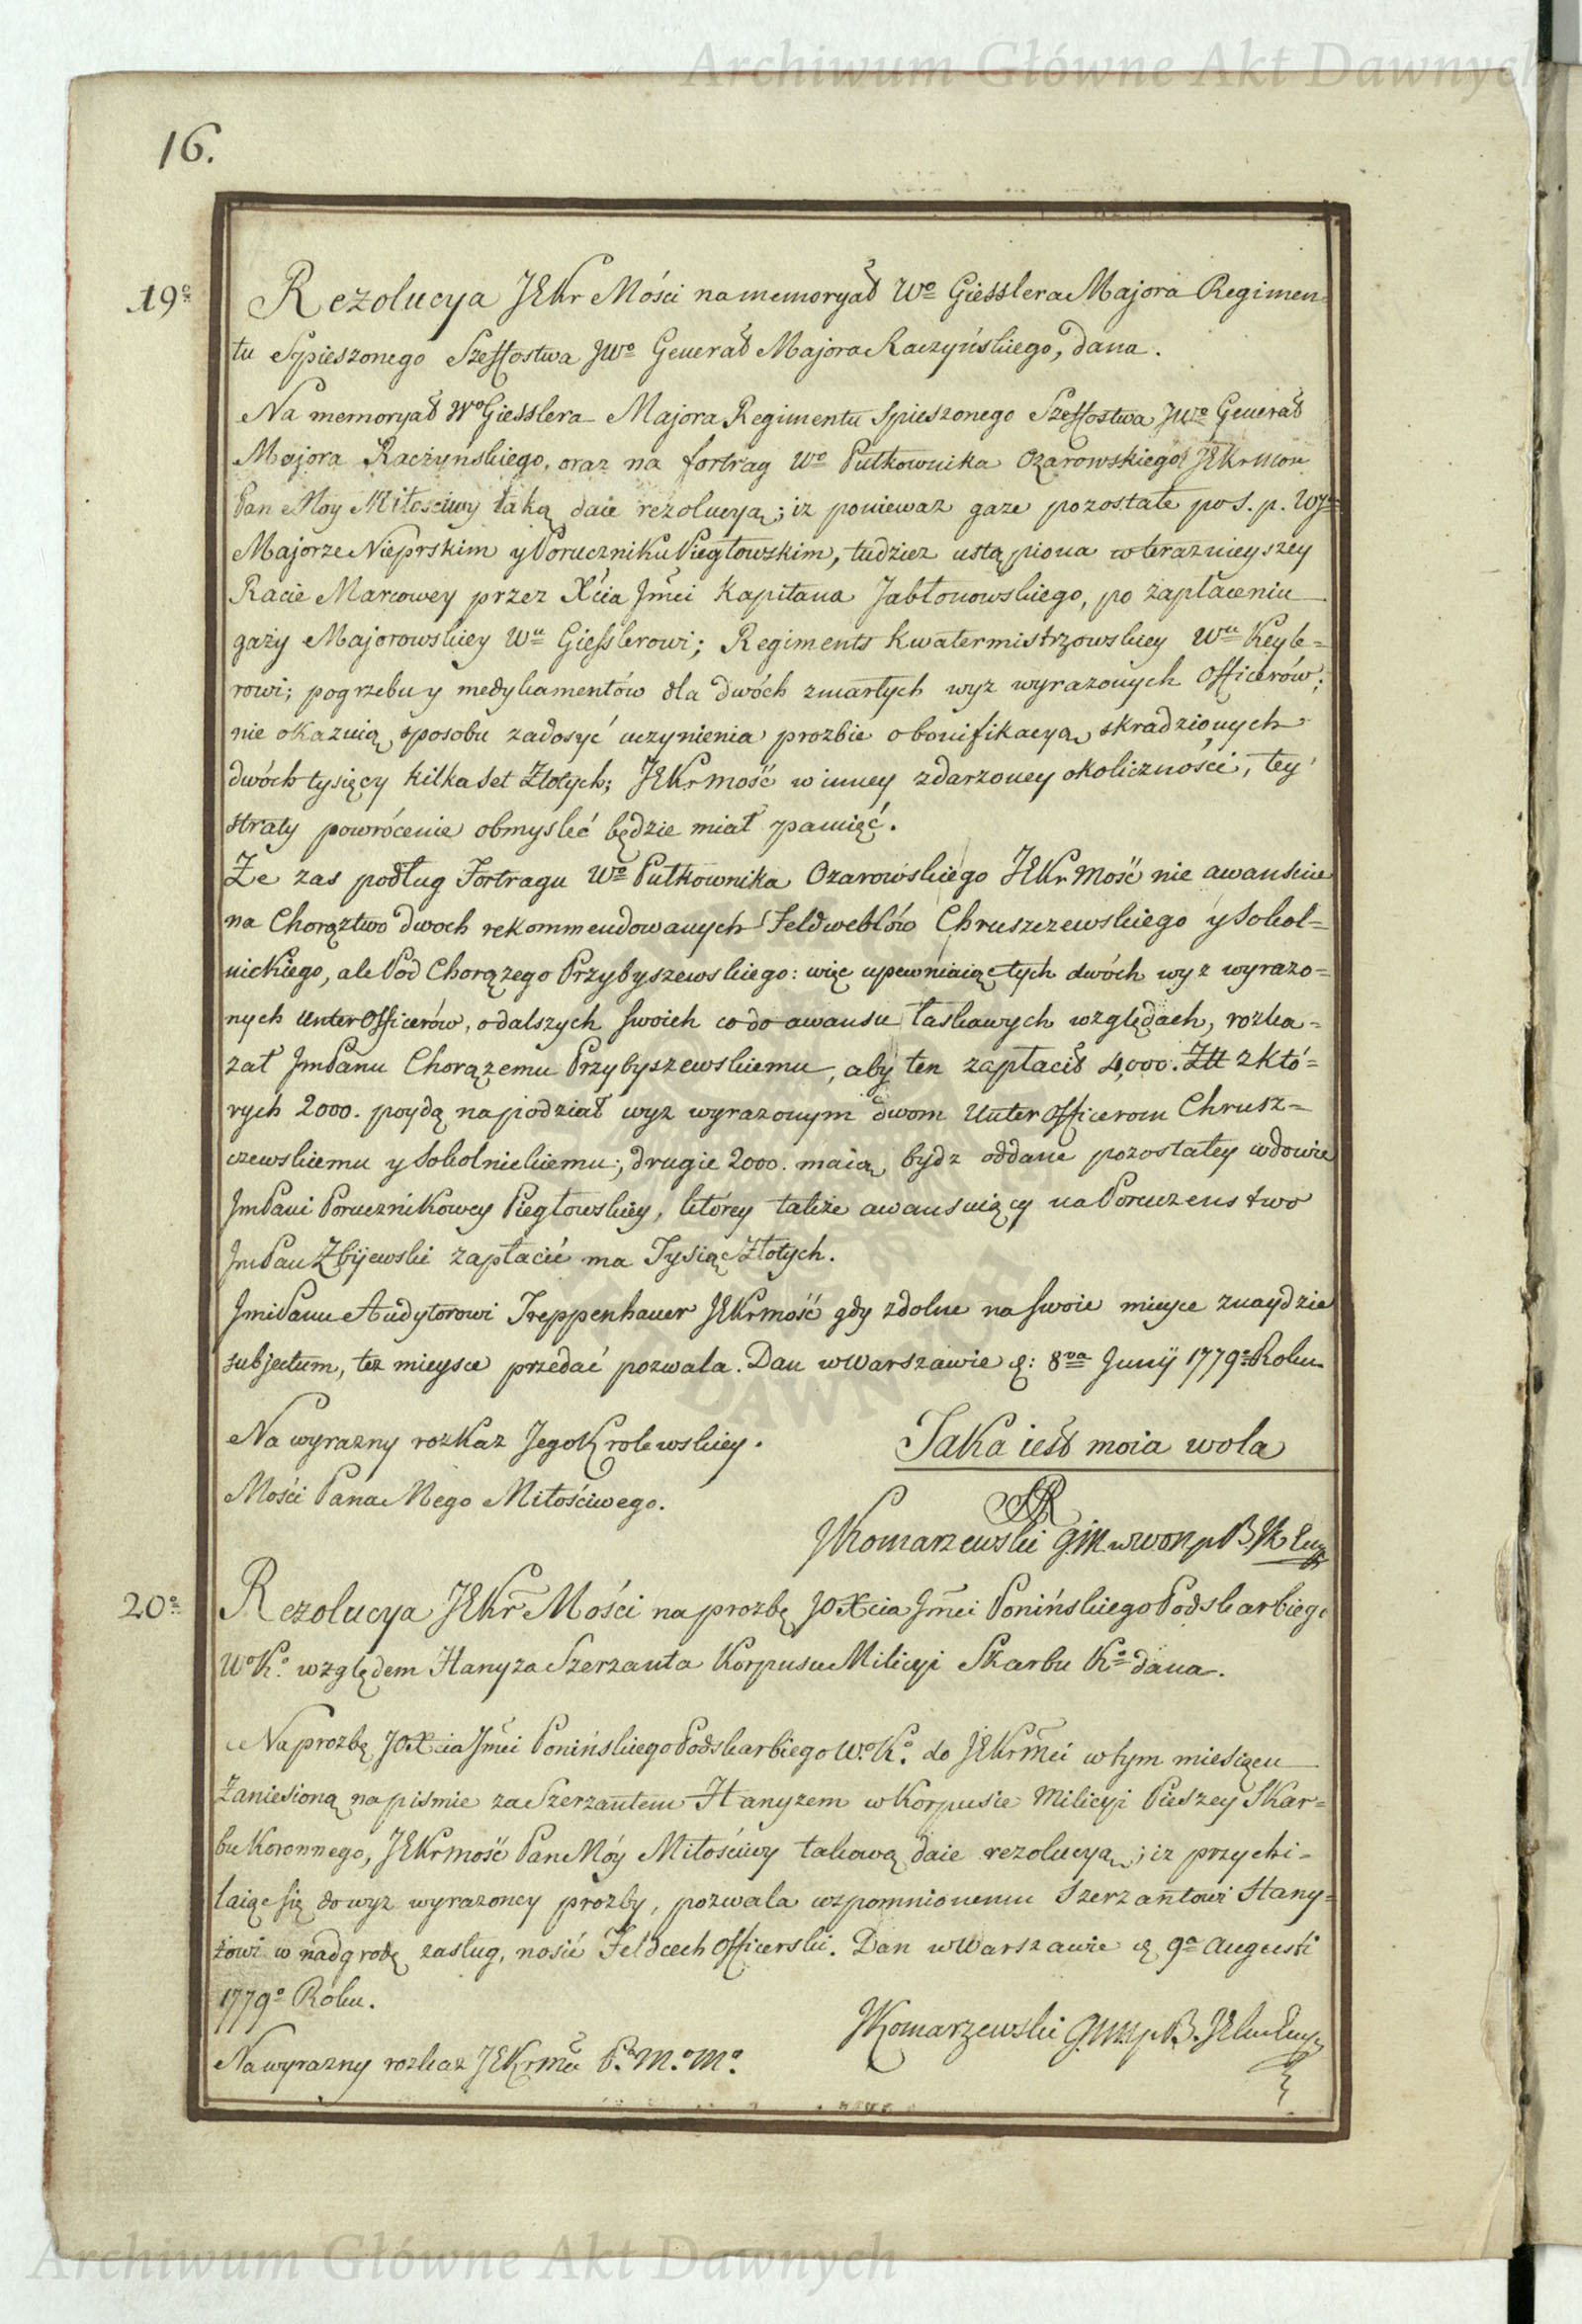 Archiwum Główne Akt Dawnych
16.
19o Rezolucya JEKr Mości na memoryał Wo Giesslera Majora Regimen-
tu Spieszonego Szeffostwa JWo Generał Majora Raczyńskiego, dana.
Na memoryał Wo Giesslera Majora Regimentu Spieszonego Szeffostwa JWo Generał
Majora Raczyńskiego, oraz na fortrag Wo Pułkownika Ożarowskiego JEKrMość
Pan Moy Miłościwy taką daie rezolucyą; iż ponieważ gaże pozostałe po s. p.
Majorze Nieprskim y Poruczniku Piegłowskim, tudzież ustąpiona w teraznieyszey
Racie Marcowey przez Xcia Jmci Kapitana Jabłonowskiego, po zapłaceniu
gaży Majorowskiey Wu Giesslerowi; Regiments Kwatermistrzowskiey Wu Keyle-
rowi; pogrzebu y medykamentów dla dwóch zmarłych wyz wyrazonych Officerów;
nie okazuią sposobu zadosyć uczynienia prozbie o bonifikacyą skradzionych
dwóch tysięcy kilka set Złotych; JEKrMość w inney zdarzoney okoliczności, tey
straty powrócenie obmysleć będzie miał pamięć.
Ze zas podług Fortragu Wo Pułkownika Ozarowskiego JEKrMość nie awansuie
na Chorąztwo dwoch rekommendowanych Feldweblów Chruszczewskiego y Sokol-
nickiego, ale Pod Chorązego Przybyszewskiego: więc upewniaiąc tych dwóch wyz wyrazo-
nych UnterOfficerów, o dalszych swoich co do awansu łaskawych względach, rozka-
zał JmPanu Chorązemu Przybyszewskiemu, aby ten zapłacił 4,000. Złł z któ-
rych 2000. poydą na podział wyz wyrazonym dwom UnterOfficerom Chrusz-
czewskiemu y Sokolnickiemu; drugie 2000. maią bydz oddane pozostałey wdowie
JmPani Porucznikowey Piegłowskiey, którey także awansuiący na Poruczenstwo
JmPan Zbijewski zapłacić ma Tysiąc Złotych.
JmiPanu Audytorowi Treppenhauer JEKrmość gdy zdolne na swoie mieysce znaydzie
subjectum, tez mieysce przedać pozwala. Dan w Warszawie d: 8va Junij 1779o Roku
Na wyrazny rozkaz Jego Krolewskiey.
Mości Pana Mego Miłościwego.
Taka iest moia wola
SR
JKomarzewski
20o Rezolucya JEKr Mości na prozbę JOXcia Jmci Ponińskiego Podskarbiego
WoKo. względem Hanyza Szerzanta Korpusu Milicyi Skarbu Ko dana.
Na prozbę JOXcia Jmci Ponińskiego Podskarbiego W.o K.o do JEKrmci w tym miesiącu
zaniesioną na pismie za Szerzantem Hanyzem w Korpusie Milicyi Pieszey Skar-
bu Koronnego, JEKrmość Pan Móy Miłościwy takową daie rezolucyą; iz przychi-
laiąc się do wyz wyrazoney prozby, pozwala wzpomnionemu Szerzantowi Hany-
zowi w nadgrodę zasług, nosić Feldcech Officerski. Dan w Warszawie d 9a Augusti
1779o Roku.
Na wyrazny rozkaz JEKrmci P.a M.o Mo.
JKomarzewski
Archiwum Główne Akt Dawnych